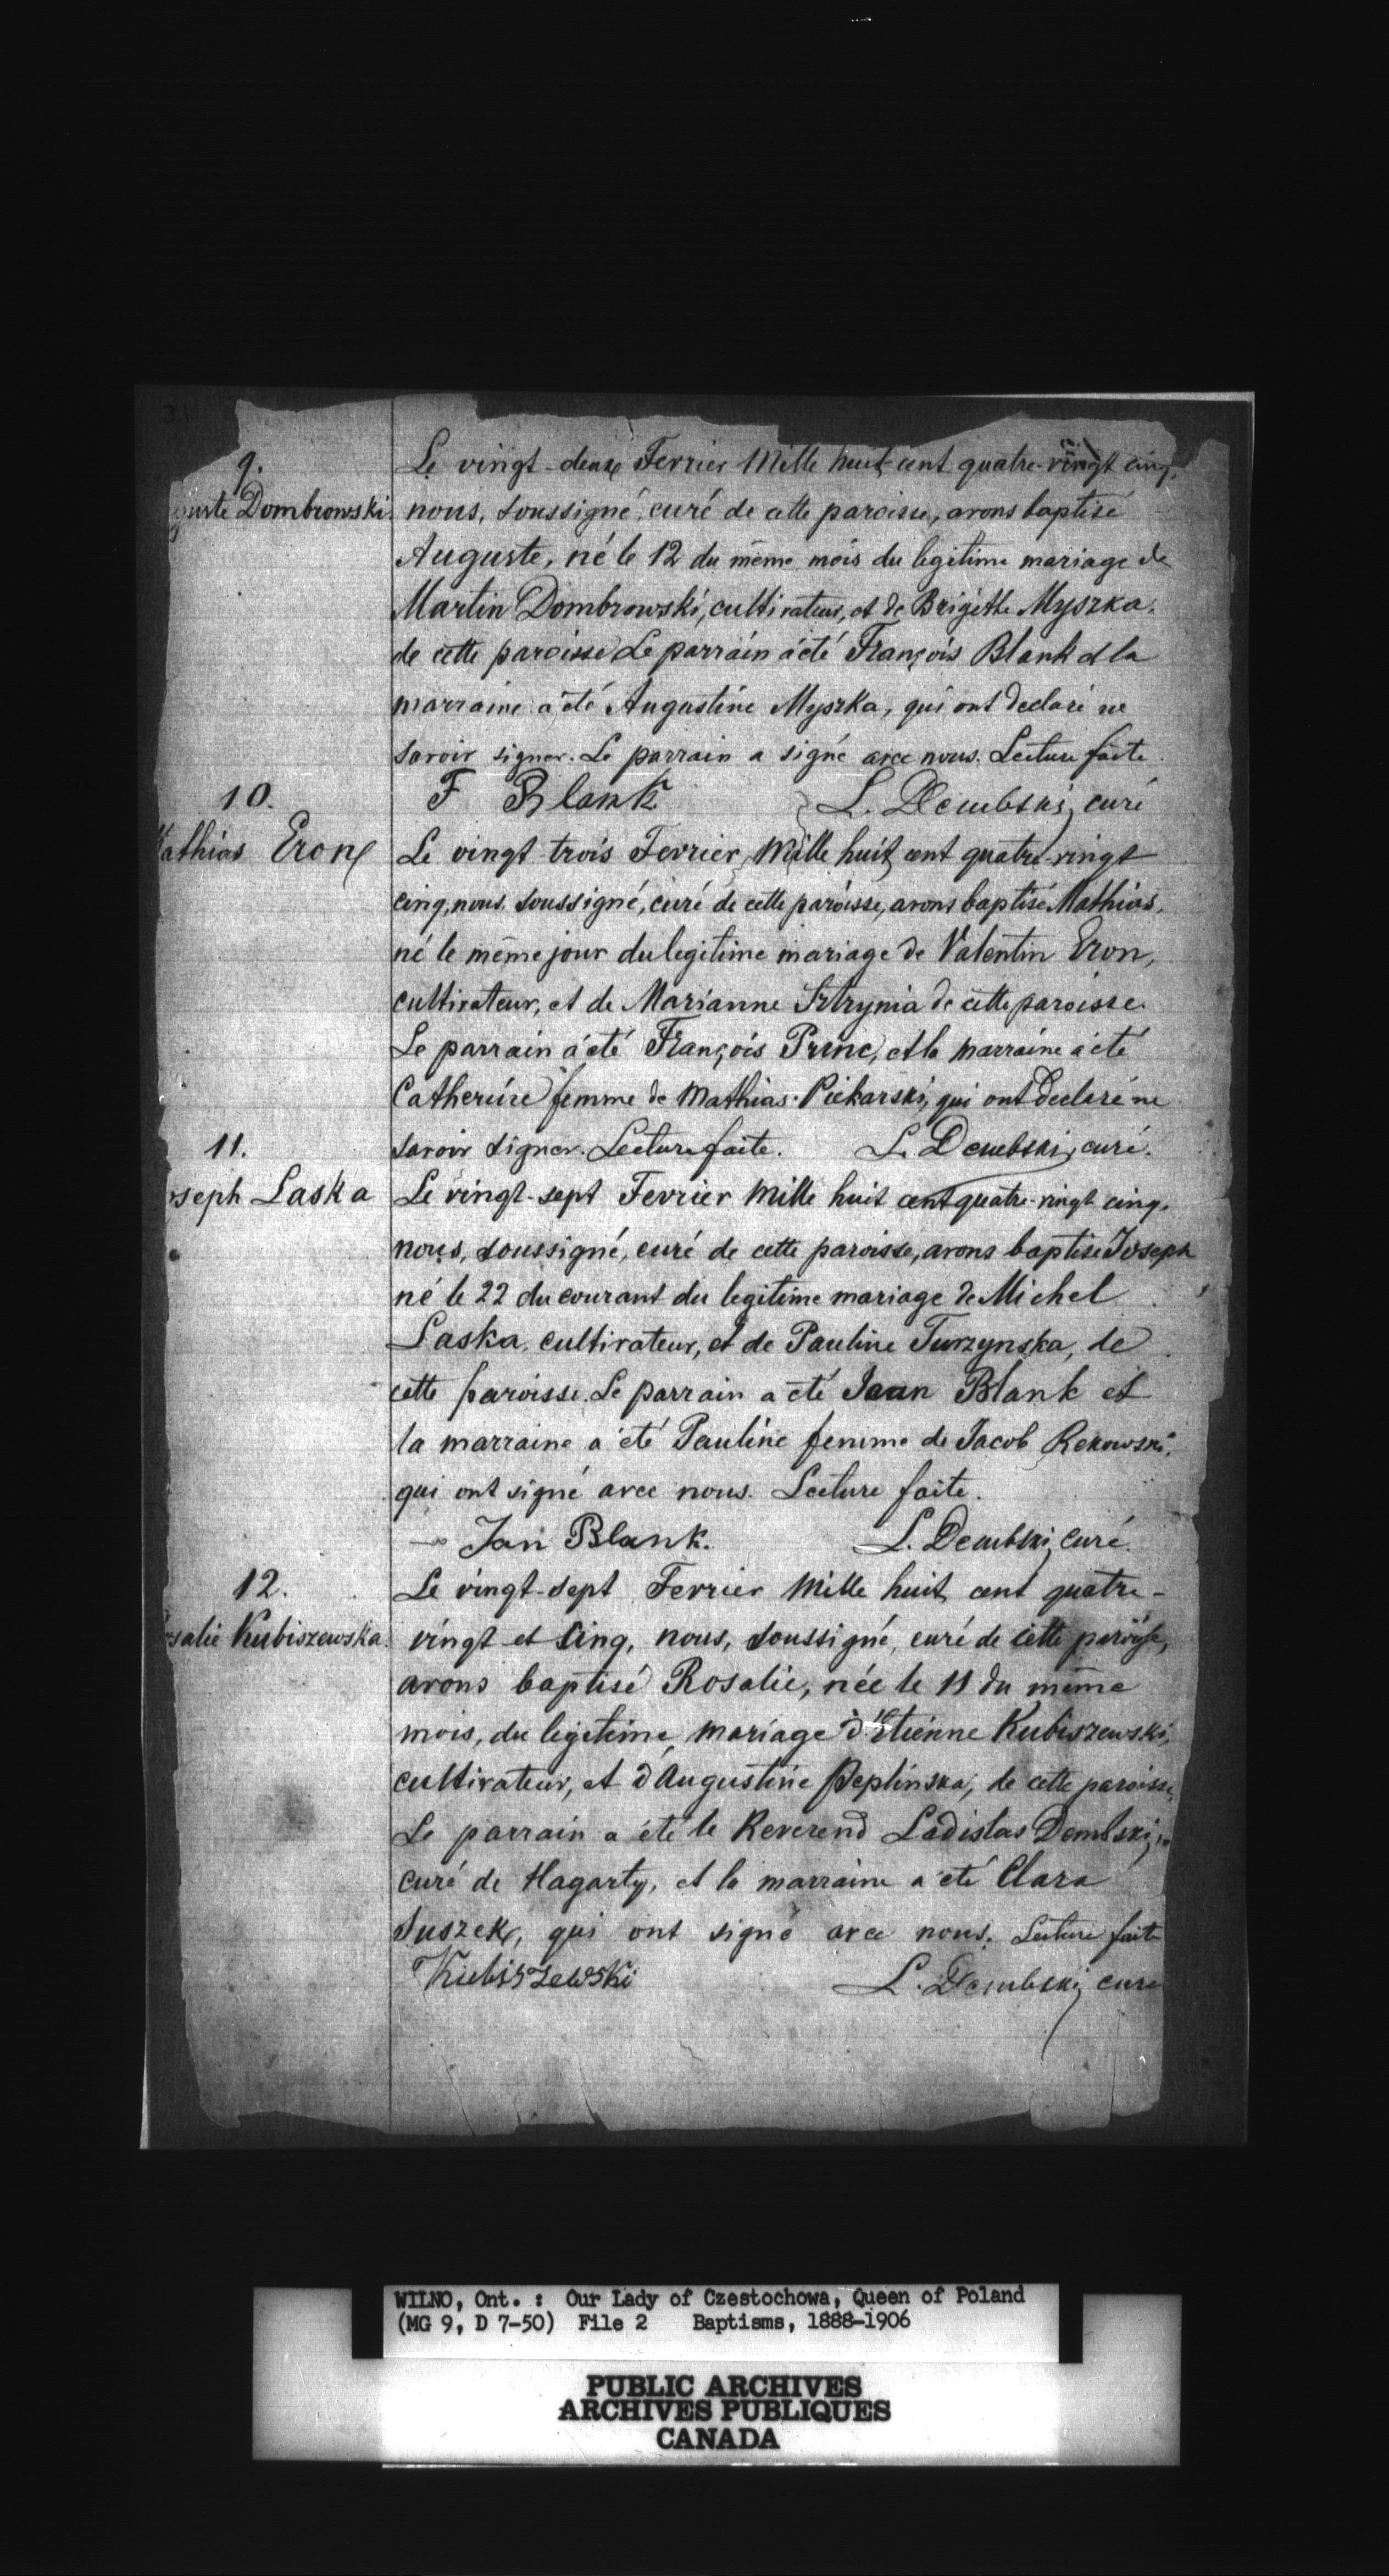 31
9.
guste Dombrowski
Le vingt-deux Fevrier Mille huit cent quatre-vingt cinq,
nous, soussigné, curé de cette paroisse, avons baptisé
Auguste, né le 12 du même mois du legitime mariage de
Martin Dombrowski, cultivateur, et de Brigitte Myszka,
de cette paroisse. Le parrain a été François Blank et la
marraine a été Augustine Myszka, qui ont declaré ne
savoir signer. Le parrain a signé avec nous. Lecture faite.
F Blank L. Dembski, curé
10.
Mathias Eron
Le vingt-trois Fevrier Mille huit cent quatre-vingt
cinq, nous, soussigné, curé de cette paroisse, avons baptisé Mathias,
né le même jour du legitime mariage de Valentin Eron,
cultivateur, et de Marianne de cette paroisse.
Le parrain a été François Princ, et la marraine a été
Catherine femme de Mathias Piekarski, qui ont declaré ne
savoir signer. Lecture faite. L. Dembski, curé.
11.
oseph Laska
Le vingt-sept Fevrier Mille huit cent quatre-vingt cinq,
nous, soussigné, curé de cette paroisse, avons baptisé Joseph
né le 22 du courant du legitime mariage de Michel
Laska, cultivateur, et de Pauline Turzynska, de
cette paroisse. Le parrain a été Jean Blank et
la marraine a été Pauline femme de Jacob Rekowski,
qui ont signé avec nous. Lecture faite.
Jan Blank. L. Dembski, curé.
12.
salie Kubiszewska.
Le vingt-sept Fevrier Mille huit cent quatre-
vingt et cinq, nous, soussigné, curé de cette paroisse,
avons baptisé Rosalie, née le 11 du même
mois, du legitime mariage d'Etienne Kubiszewski,
cultivateur, et d'Augustine Peplinska, de cette paroisse,
Le parrain a été le Reverend Ladislas Dembski,
curé de Hagarty, et la marraine a été Clara
Suszek, qui ont signé avec nous. Lecture faite
Kubiszewski L. Dembski, curé
WILNO, Ont. : Our Lady of Czestochowa, Queen of Poland
(MG 9, D 7-50) File 2 Baptisms, 1888-1906
PUBLIC ARCHIVES
ARCHIVES PUBLIQUES
CANADA